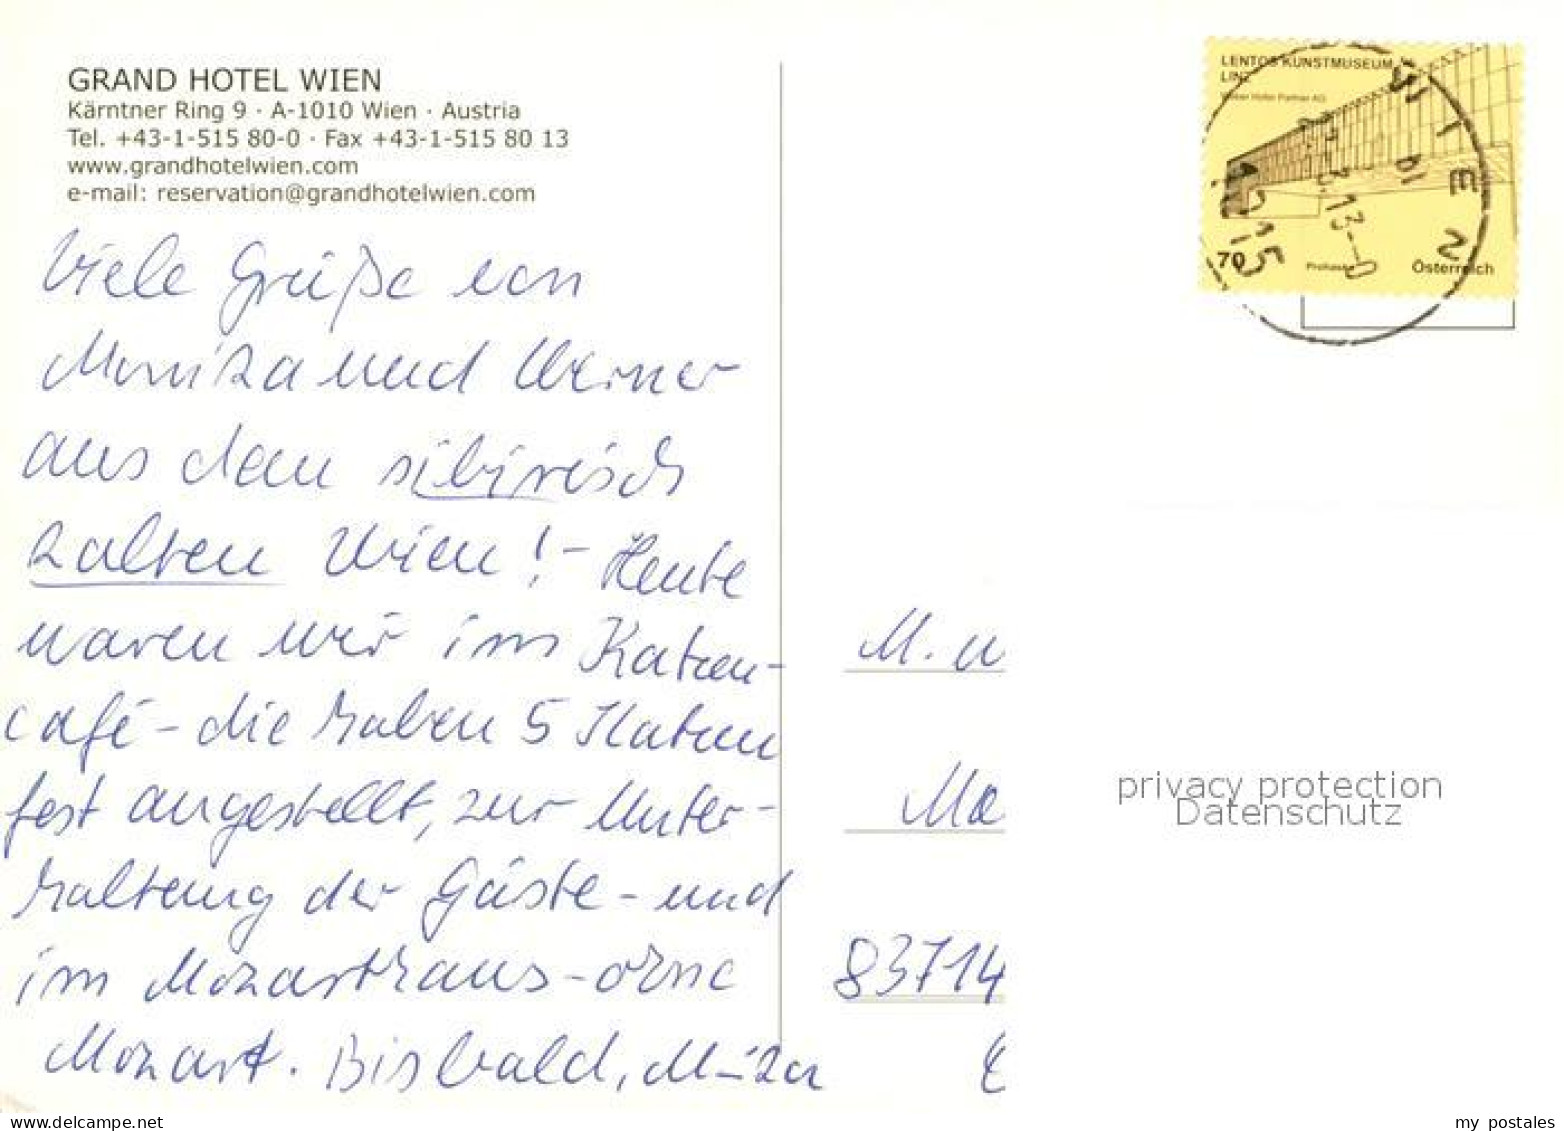 GRAND HOTEL WIEN
Kärntner Ring 9 · A-1010 Wien · Austria
Tel. +43-1-515 80-0 · Fax +43-1-515 80 13
www.grandhotelwien.com
e-mail: reservation@grandhotelwien.com
Viele Grüße von
Monika und Werner
aus dem sibirisch
kalten Wien! - Heute
waren wir im Katzen-
café - die haben 5 Katzen
fest angestellt, zur Unter-
haltung der Gäste - und
im Mozarthaus - ohne
Mozart. Bis bald,
LENTOS KUNSTMUSEUM
LINZ
70
Österreich
WIEN
M. u
Ma
83714
privacy protection
Datenschutz
www.delcampe.net
my_postales